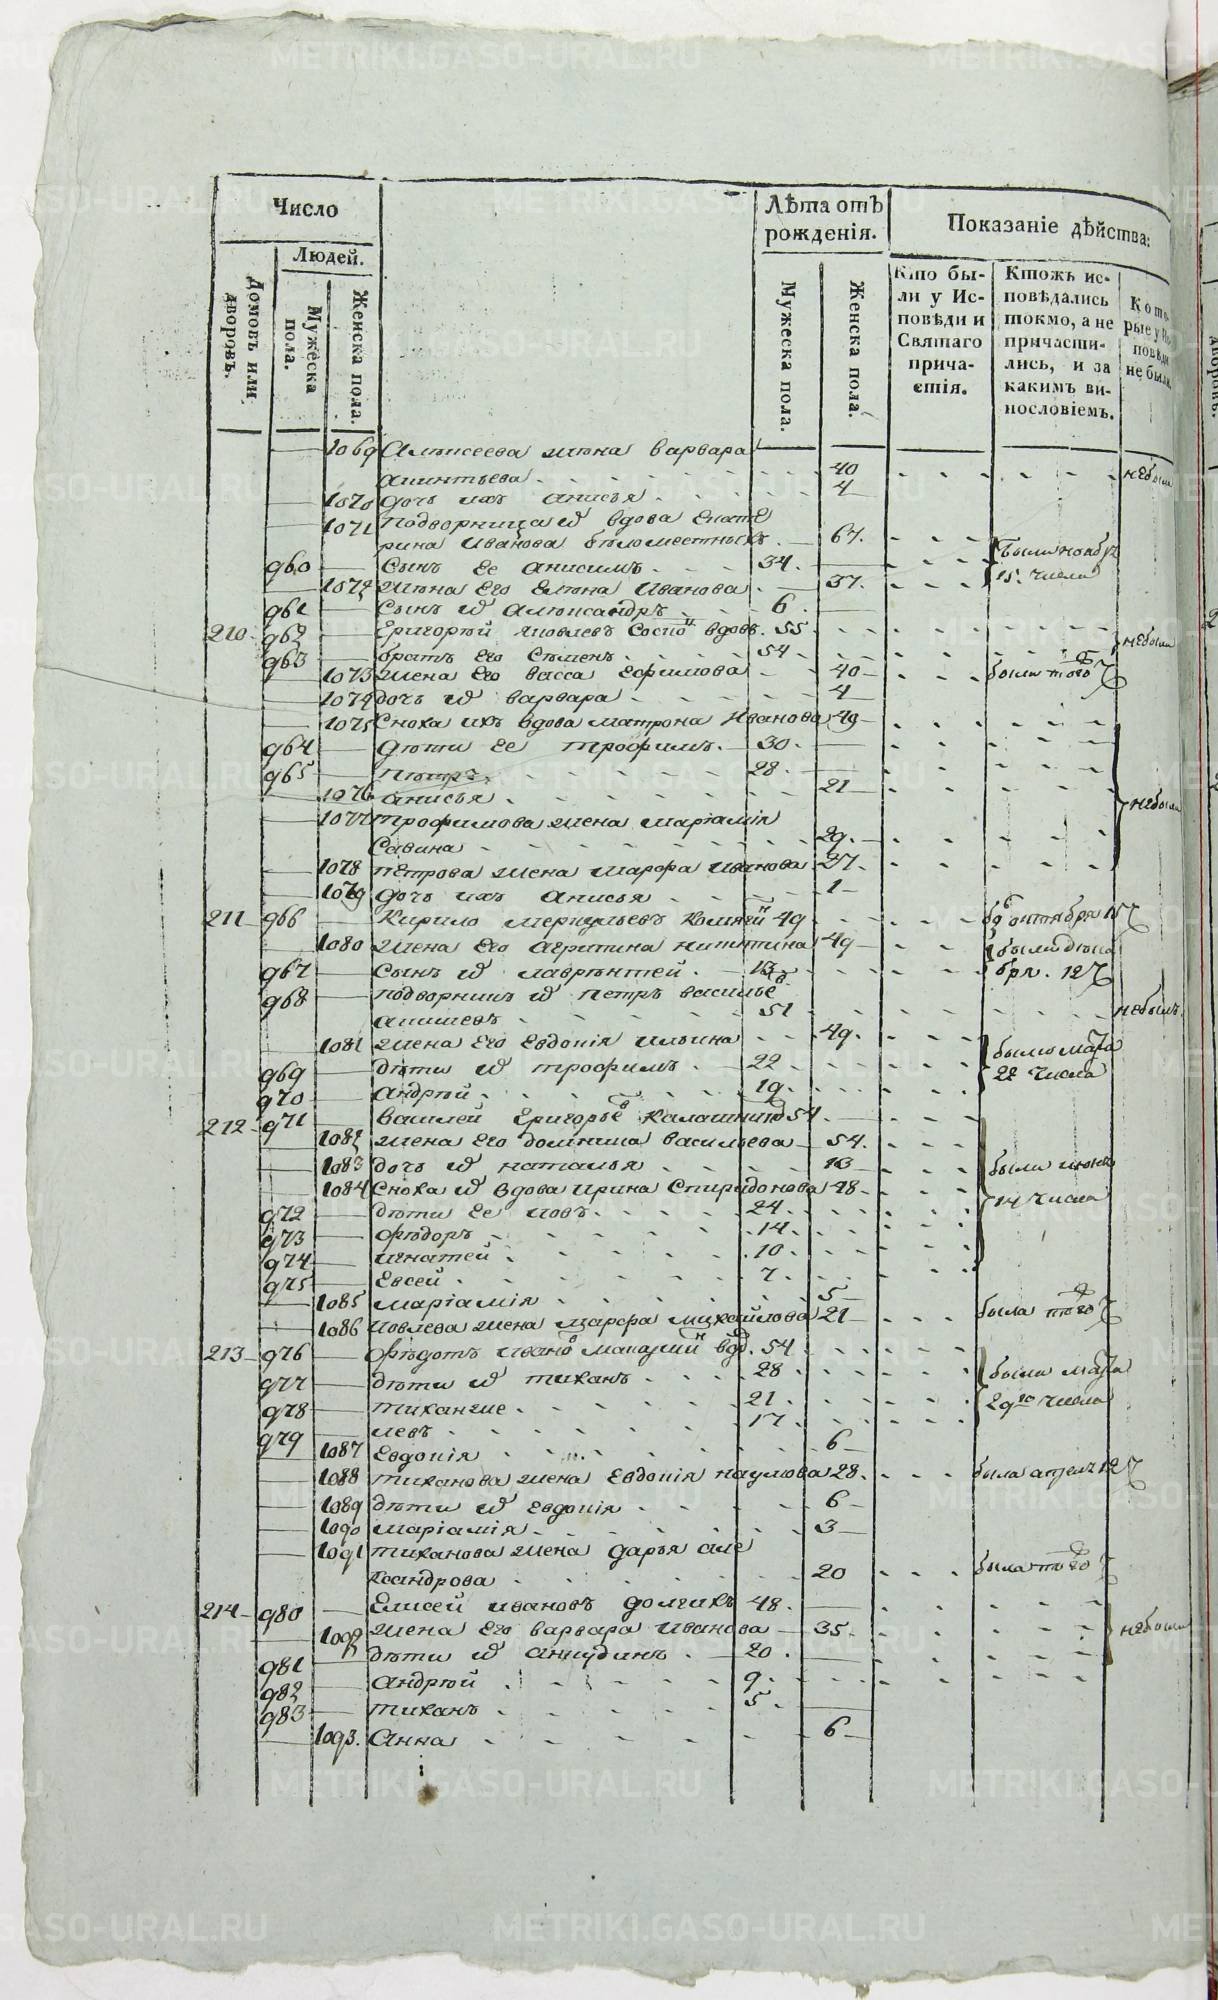 Число
Людей.
Домовъ или дворовъ.
Мужеска пола.
Женска пола.
Лѣта отъ рожденія.
Мужеска пола.
Женска пола.
Показаніе дѣйства:
Кто были у Исповѣди и Святаго причастія.
Ктожъ исповѣдались токмо, а не причастились, и за какимъ винословіемъ.
Которые у Исповѣди не были.
1069 Алексеева жена варвара
акинтьева 40 небыли
1070 дочь ихъ анисья 4
1071 подворница и вдова Екате
рина Иванова бѣломестныхъ 67.
960 сынъ ее анисимъ 34. были ноября
1072 жена Его Елена Иванова 37. 15. числа
961 сынъ и Александръ 6
210 962 Григорий яковлевъ вдовъ. 55
963 братъ Его Семенъ 54 небыли
1073 жена Его васса Ефимова 40 была того
1074 дочь и варвара 4
1075 сноха ихъ вдова матрона Иванова 49
964 дети ее трофимъ 30
965 петръ 28
1076 анисья 21
1077 трофимова жена маріамія
Савина 29. небыли
1078 петрова жена марфа Иванова 27
1079 дочь ихъ анисья 1
211 966 Кирило меркурьевъ 49 октября 15
1080 жена Его агрипина никитина 49 были дека
967 сынъ и лаврентей 13 бря. 12
968 подворникъ и петръ василье
51 небылъ.
1081 жена Его Евдокія ильина 49. были маія
969 дети и трофимъ 22 22 числа
970 андрей 19
212 971 василей Григорье 54
1082 жена Его домника васильева 54.
1083 дочь и наталья 13 были июня
1084 сноха и вдова ирина Спиридонова 48 14 числа
972 дети ее иовъ 24
973 федоръ 14
974 игнатей 10
975 Евсей 7
1085 маріамія 5
1086 Иовлева жена марфа михайлова 21 была того
213 976 федотъ ивано 54
977 дети и тиханъ 28 были маія
978 тиханже 21 29го числа
979 левъ 17
1087 Евдокія 6
1088 тиханова жена Евдокія наумова 28. была апреля 12
1089 дети и Евдокія 6
1090 маріамія 3
1091 тиханова жена дарья але
ксандрова 20 была того
214 980 Елисей ивановъ долгихъ 48.
1092 жена Его варвара Иванова 35 небыли
981 дети и акиудинъ 20
982 андрей 9
983 тиханъ 5
1093. Анна 6
METRIKI.GASO-URAL.RU